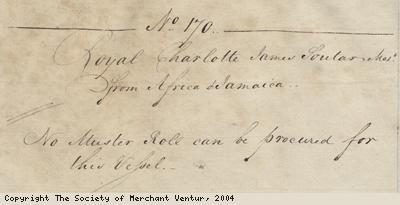 No. 170.
Royal Charlotte James Soutar Masr.
from Africa & Jamaica..
No Muster Roll can be procured for
this Vessel..
Copyright The Society of Merchant Ventur, 2004